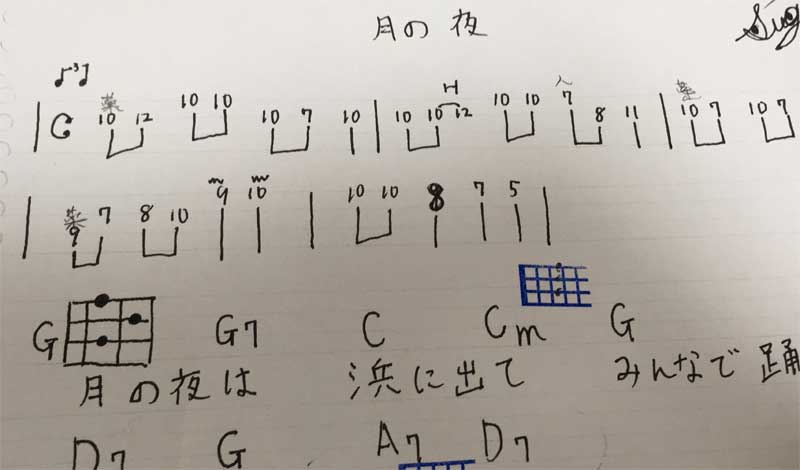 月の夜
Sug
10 12 10 10 10 7 10 10 10 H 12 10 10 7 8 11 10 7 10 7
9 7 8 10 9 10 10 10 8 7 5
G G7 C Cm G
月の夜は 浜に出て みんなで 踊
D7 G A7 D7